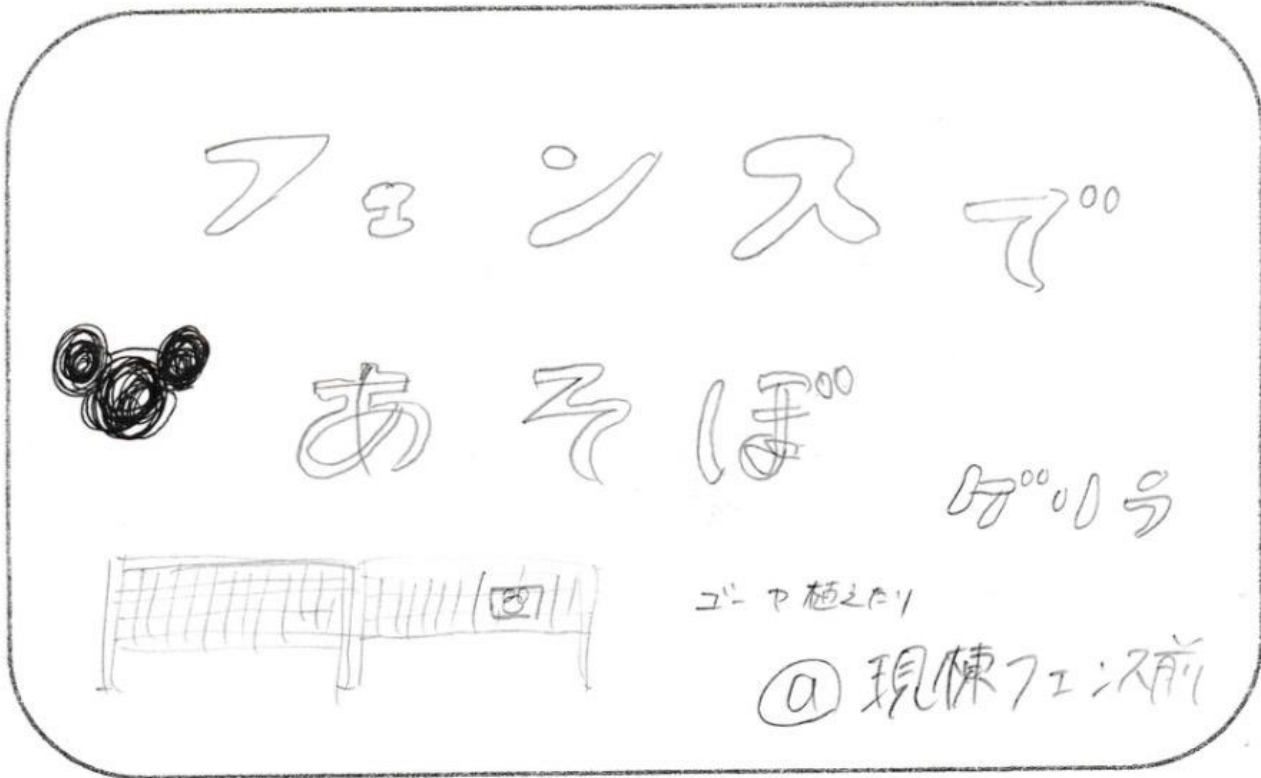 フェンスで
あそぼ
ゲリラ
ゴーヤ植えたり
@現棟フェンス前